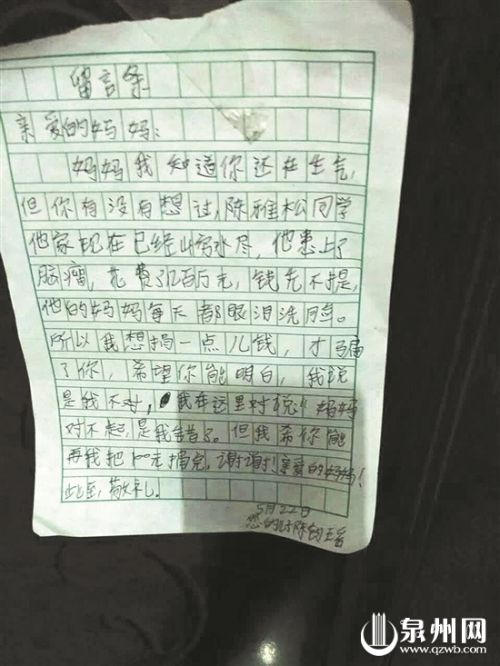 留言条
亲爱的妈妈:
妈妈我知道你还在生气,
但你有没有想过,陈雅松同学
他家现在已经山穷水尽,他患上了
脑瘤,花费了几百万元,钱先不提,
他的妈妈每天都眼泪洗脸。
所以我想捐一点儿钱,才骗
了你,希望你能明白,我说
是我不对,我在这里对说"妈妈
对不起,是我错了。但我希你能
再我把100元捐完,谢谢!亲爱的妈妈!
此至,敬礼。
5月22日
您的 陈
泉州网
www.qzwb.com